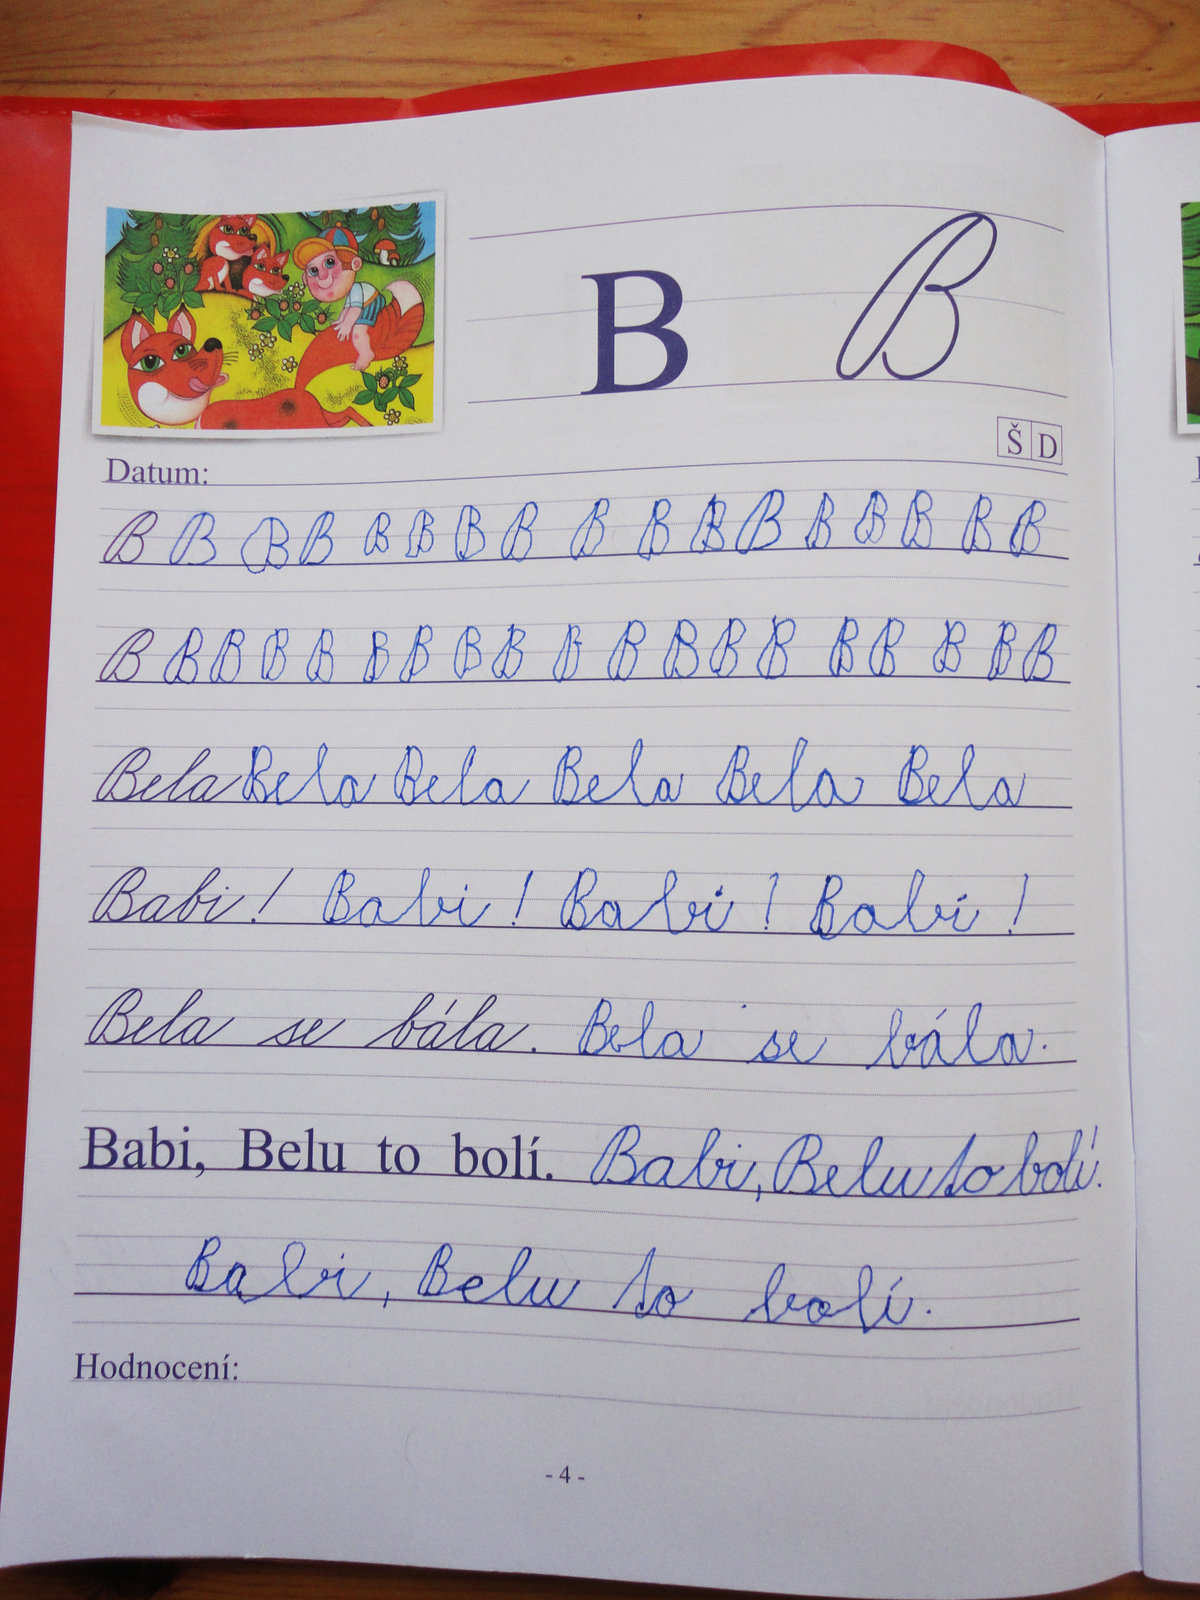 B B
Š D
Datum:
B B B B B B B B B B B B B B B B B
B B B B B B B B B B B B B B B B B B B
Bela Bela Bela Bela Bela Bela
Babi! Babi! Babi! Babi!
Bela se bála. Bela se bála.
Babi, Belu to bolí. Babi, Belu to bolí.
Babi, Belu to bolí.
Hodnocení:
- 4 -